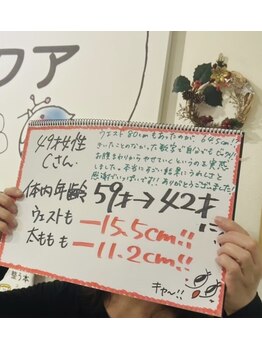 クア
49才女性
Cさん
ウエスト80cmもあったのが、64.5cm!
きいたことのなかった数字で自分でもビックリ!
お腹まわりからやせていくというのを実感
しました。本当にすごい結果でうれしさと
感謝がいっぱいです!! ありがとうございました!
体内年齢 59才→42才に!!
ウエストも −15.5cm!!
太ももも −11.2cm!!
キャ〜!!
整う本